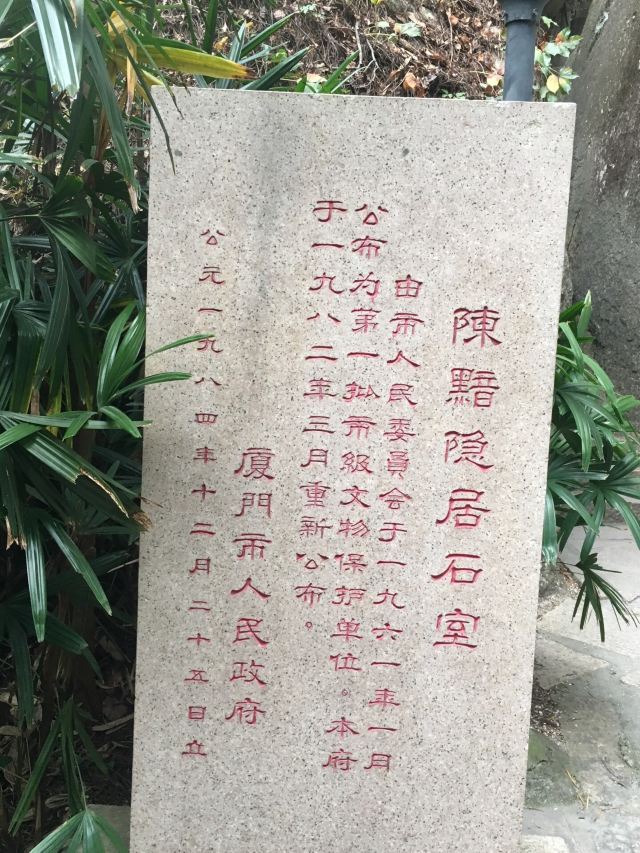 陳黯隐居石室
由市人民委員会于一九六一年一月
公布为第一批市級文物保护单位。本府
于一九八二年三月重新公布。
厦門市人民政府
公元一九八四年十二月二十五日立